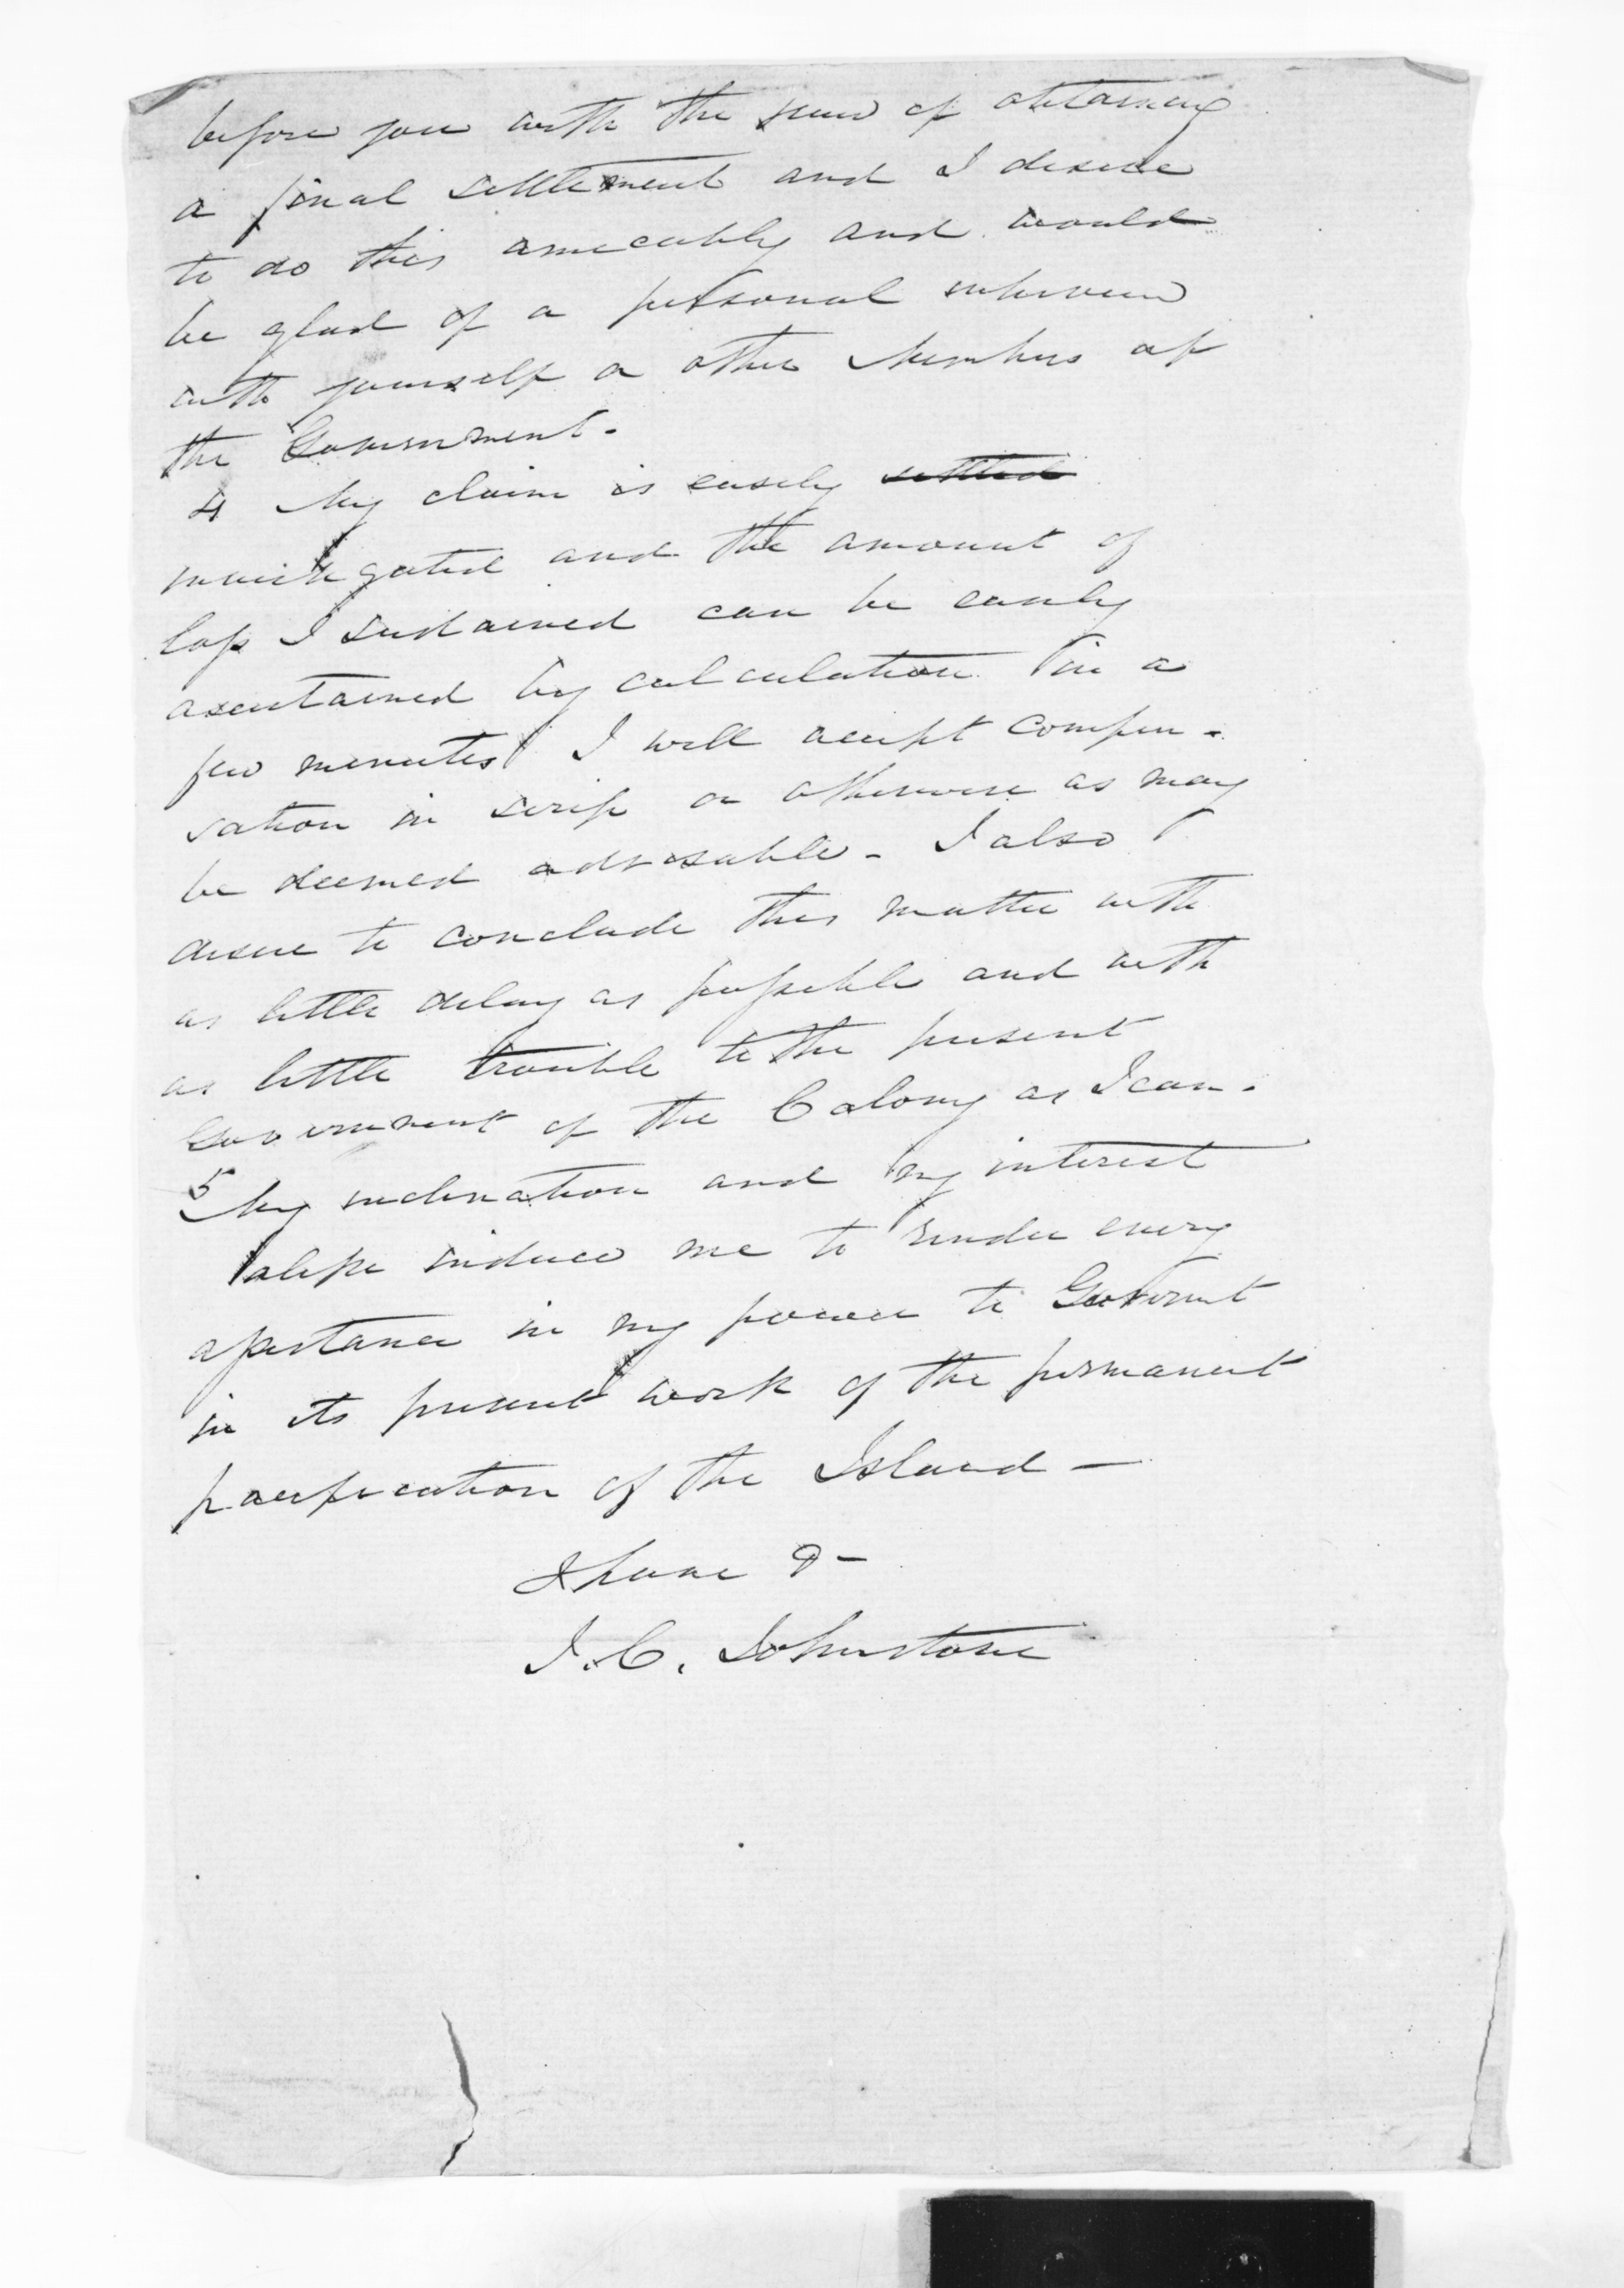 before you with the view of obtaining
a final settlement and I desire
to do this amicably and would
be glad of a personal interview
with yourself or other Members of
the Government.
4 My claim is easily settled
investigated and the amount of
loss I sustained can be easily
ascertained by calculation in a
few minutes I will accept compen-
sation in scrip or otherwise as may
be deemed advisable - I also
desire to conclude this matter with
as little delay as possible and with
as little trouble to the present
Government of the Colony as I can.
5 My inclination and my interest
alike induce me to render every
assistance in my power to Governmt
in its present work of the permanent
pacification of the Island —
I have &-
J. C. Johnstone